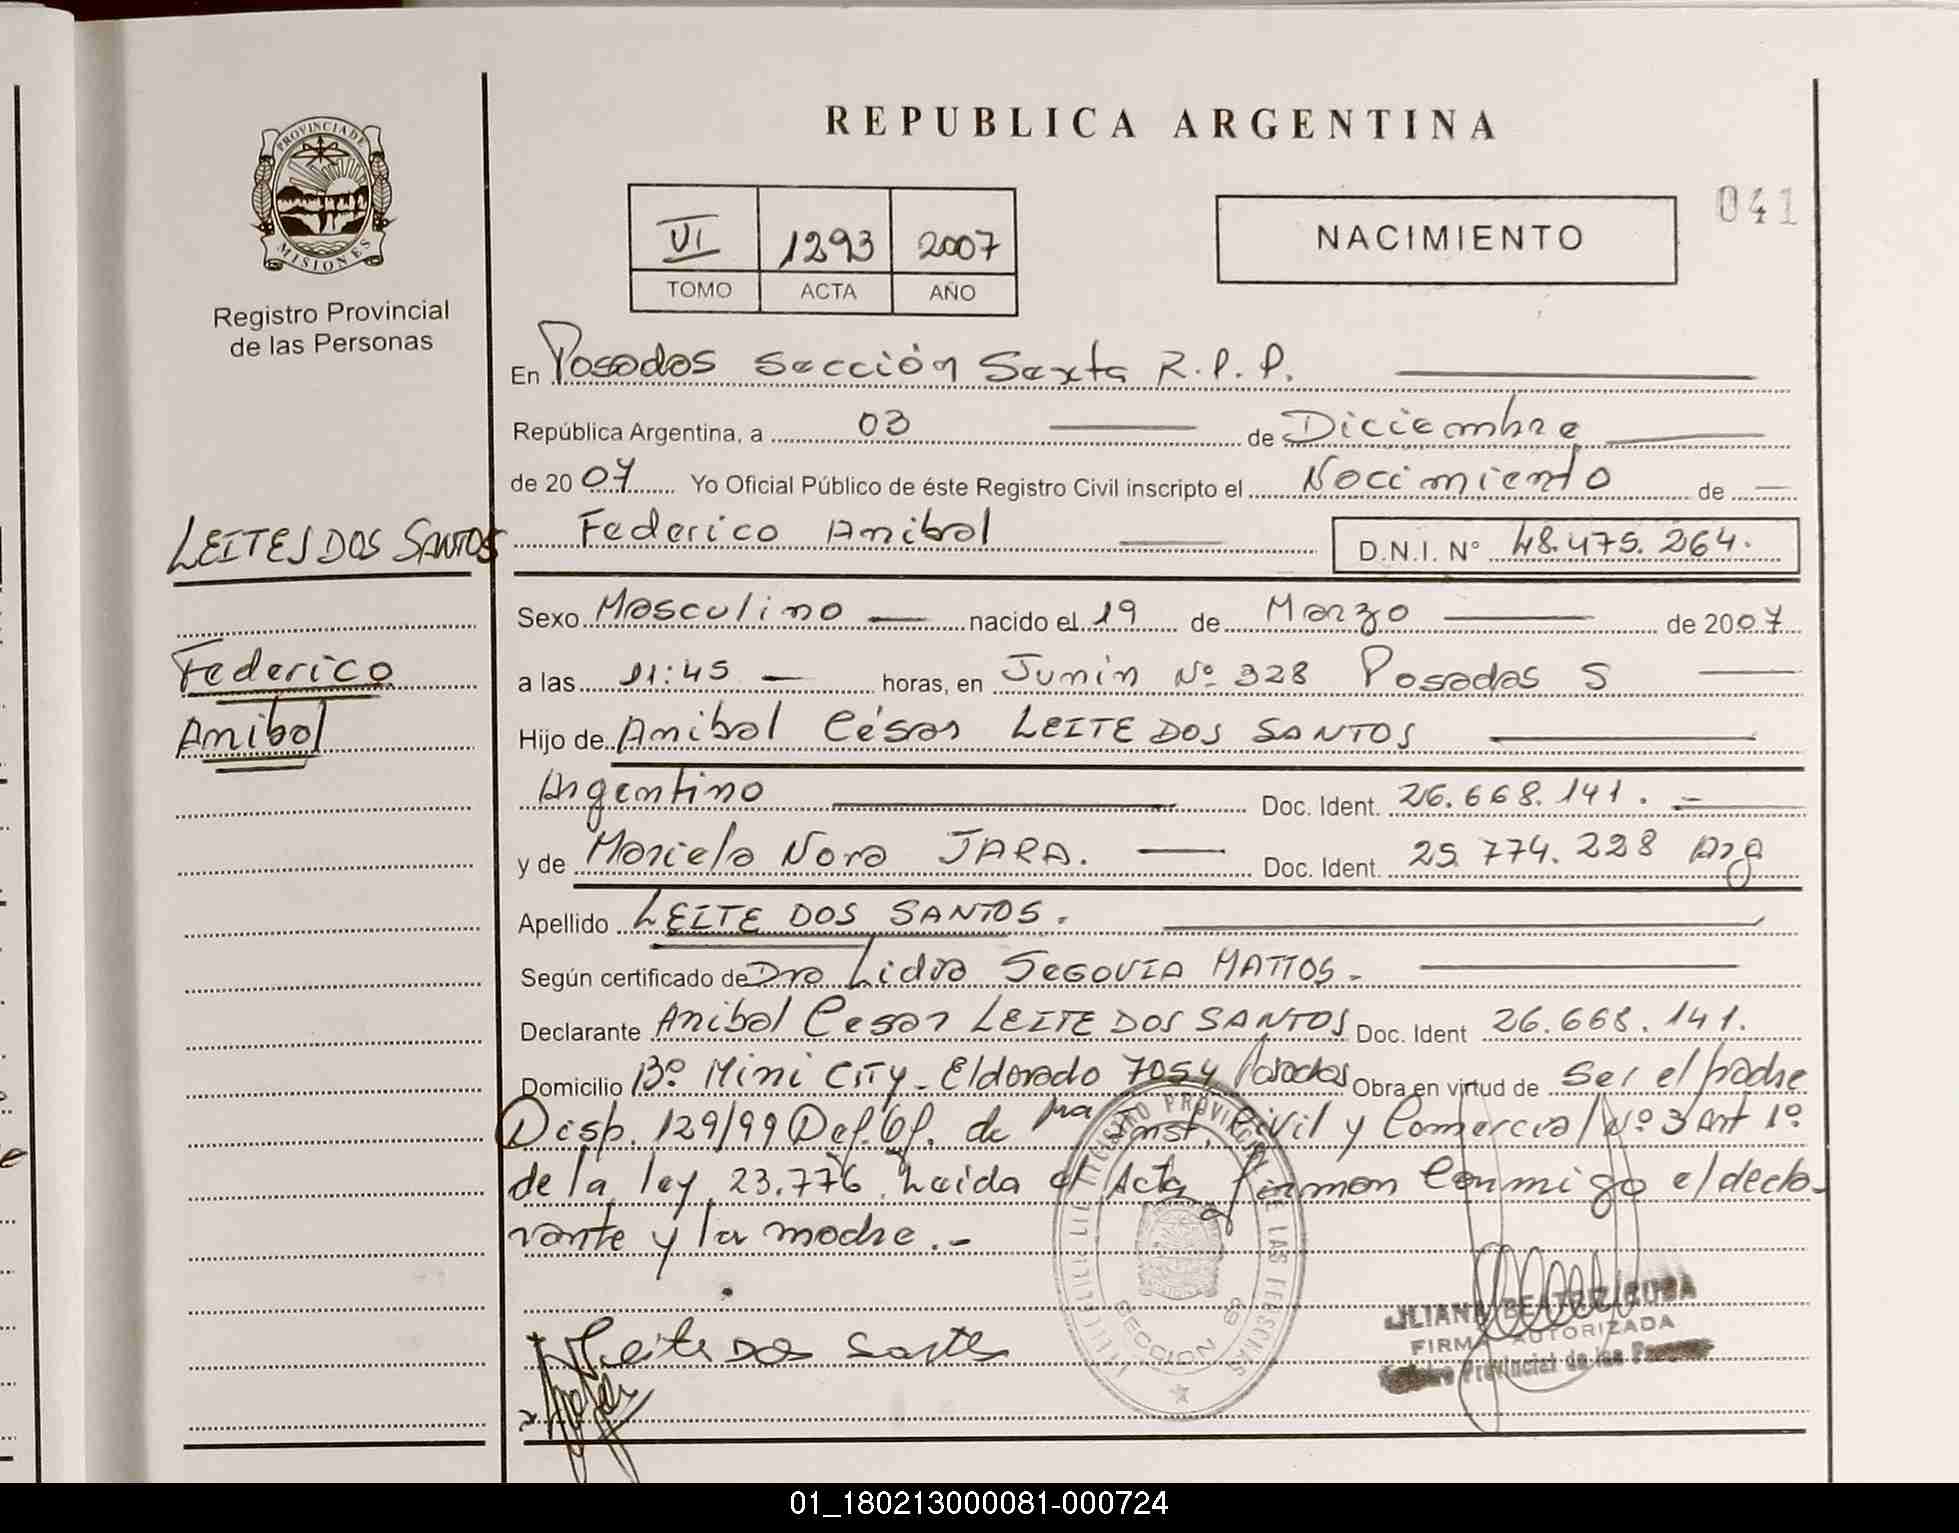 REPUBLICA ARGENTINA
PROVINCIA DE
MISIONES
Registro Provincial
de las Personas
VI 1293 2007
TOMO ACTA AÑO
NACIMIENTO
041
En Posadas Sección Sexta R.P.P.
República Argentina, a 03 de Diciembre
de 2007 Yo Oficial Público de éste Registro Civil inscripto el Nacimiento de
LEITES DOS SANTOS
Federico Anibal D.N.I. N° 48.475.264.
Sexo Masculino nacido el 19 de Marzo de 2007
Federico
a las 11:45 horas, en Junin Nº 328 Posadas S
Anibal
Hijo de Anibal César LEITE DOS SANTOS
Argentino Doc. Ident. 26.668.141.-
y de Mariela Nora JARA. Doc. Ident. 25.774.228 Arg
Apellido LEITE DOS SANTOS.
Según certificado de Dra Lidia SEGOVIA MATTOS-
Declarante Anibal Cesar LEITE DOS SANTOS Doc. Ident 26.668.141.
Domicilio Bº Mini City-Eldorado 7054 Posadas Obra en virtud de Ser el padre
Disp. 129/99 Def. Of. de 1ra Inst. Civil y Comercial Nº 3 Art 1º
de la ley 23.776. Leida el Acta firman Conmigo el decla-
rante y la madre.-
Leite Dos Santos
REGISTRO PROVINCIAL DE LAS PERSONAS
SECCION 6ª
BEATRIZ
FIRMA AUTORIZADA
Registro Provincial de las Personas
01_180213000081-000724